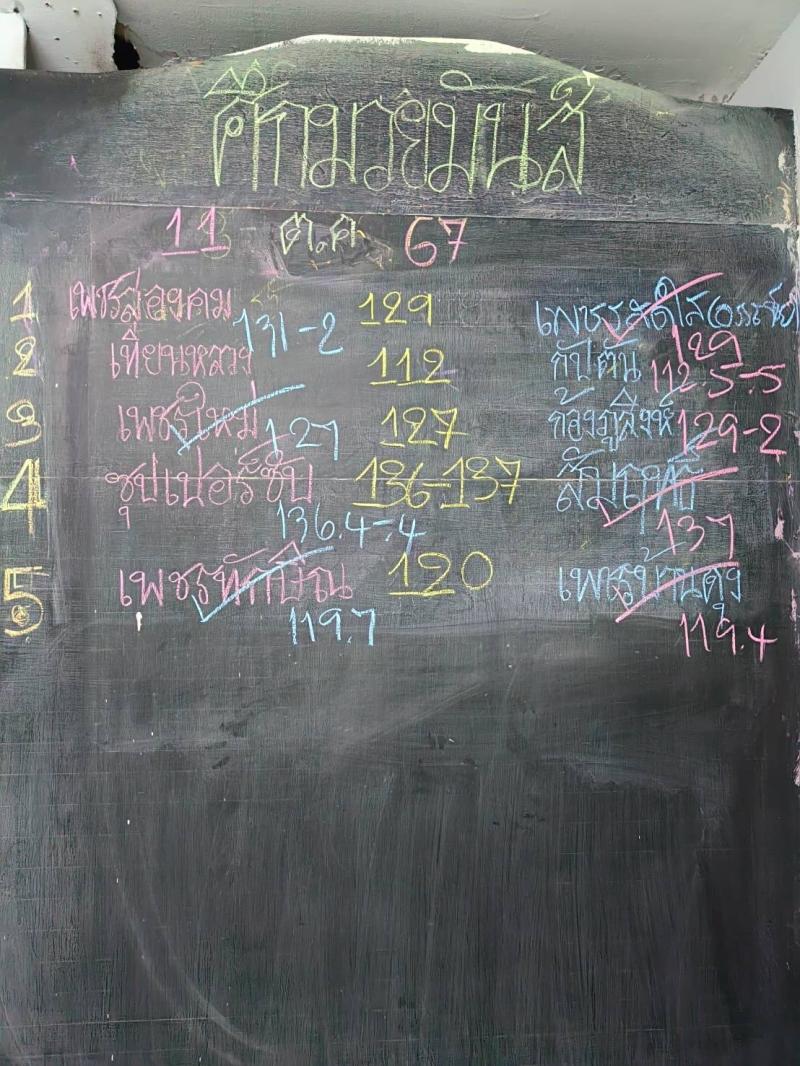 ศึกมวยมันส์
11 ต.ค 67
1 เพชรสองคม 129 เพชรสดใส(อรชัย)
131-2 129
2 เทียนหลวง 112 กัปตัน
112.5-.5
3 เพชรใหม่ 127 ก้องภูสิงห์
127 129-2
4 ซุปเปอร์ซับ 136-137 สัมฤทธิ์
136.4-.4 137
5 เพชรทักษิณ 120 เพชรบ้านดุง
119.7 119.4